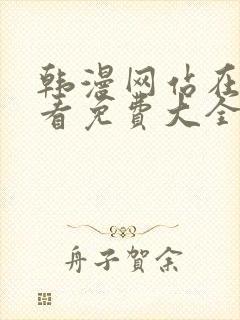 韩漫网站在
看免费大全
舟子贺余